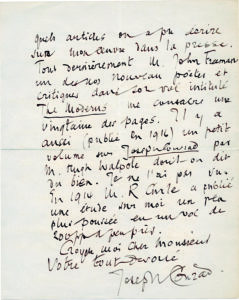 quels articles on a pu ecrire
sur mon œuvre dans la presse.
Tout dernièrement M. John Freeman
un de nos nouveau poètes et
critiques dans son vol intitulé
The Moderns me consacre une
vingtaine des pages. Il y a
aussi (publié en 1914) un petit
volume sur Joseph Conrad par
M. Hugh Walpole dont on dit
du bien. Je ne l'ai pas vu.
En 1914 M. R Curle a publié
une étude sur moi un peu
plus poussée en un vol de
200 pp a peu près.
Croyez moi cher Monsieur
Votre tout devoué
Joseph Conrad